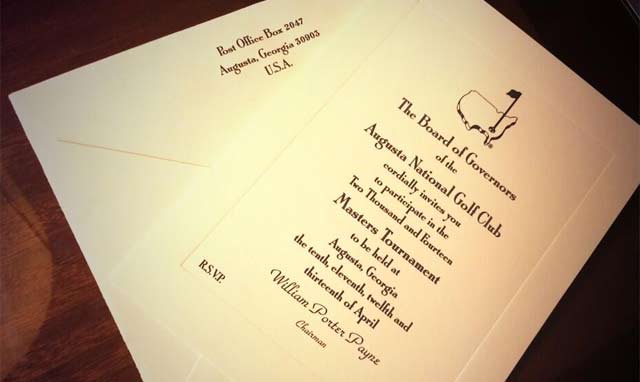 Post Office Box 2047
Augusta, Georgia 30903
U.S.A.
The Board of Governors
of the
Augusta National Golf Club
cordially invites you
to participate in the
Two Thousand and Fourteen
Masters Tournament
to be held at
Augusta, Georgia
the tenth, eleventh, twelfth and
thirteenth of April
William Porter Payne
Chairman
R.S.V.P.